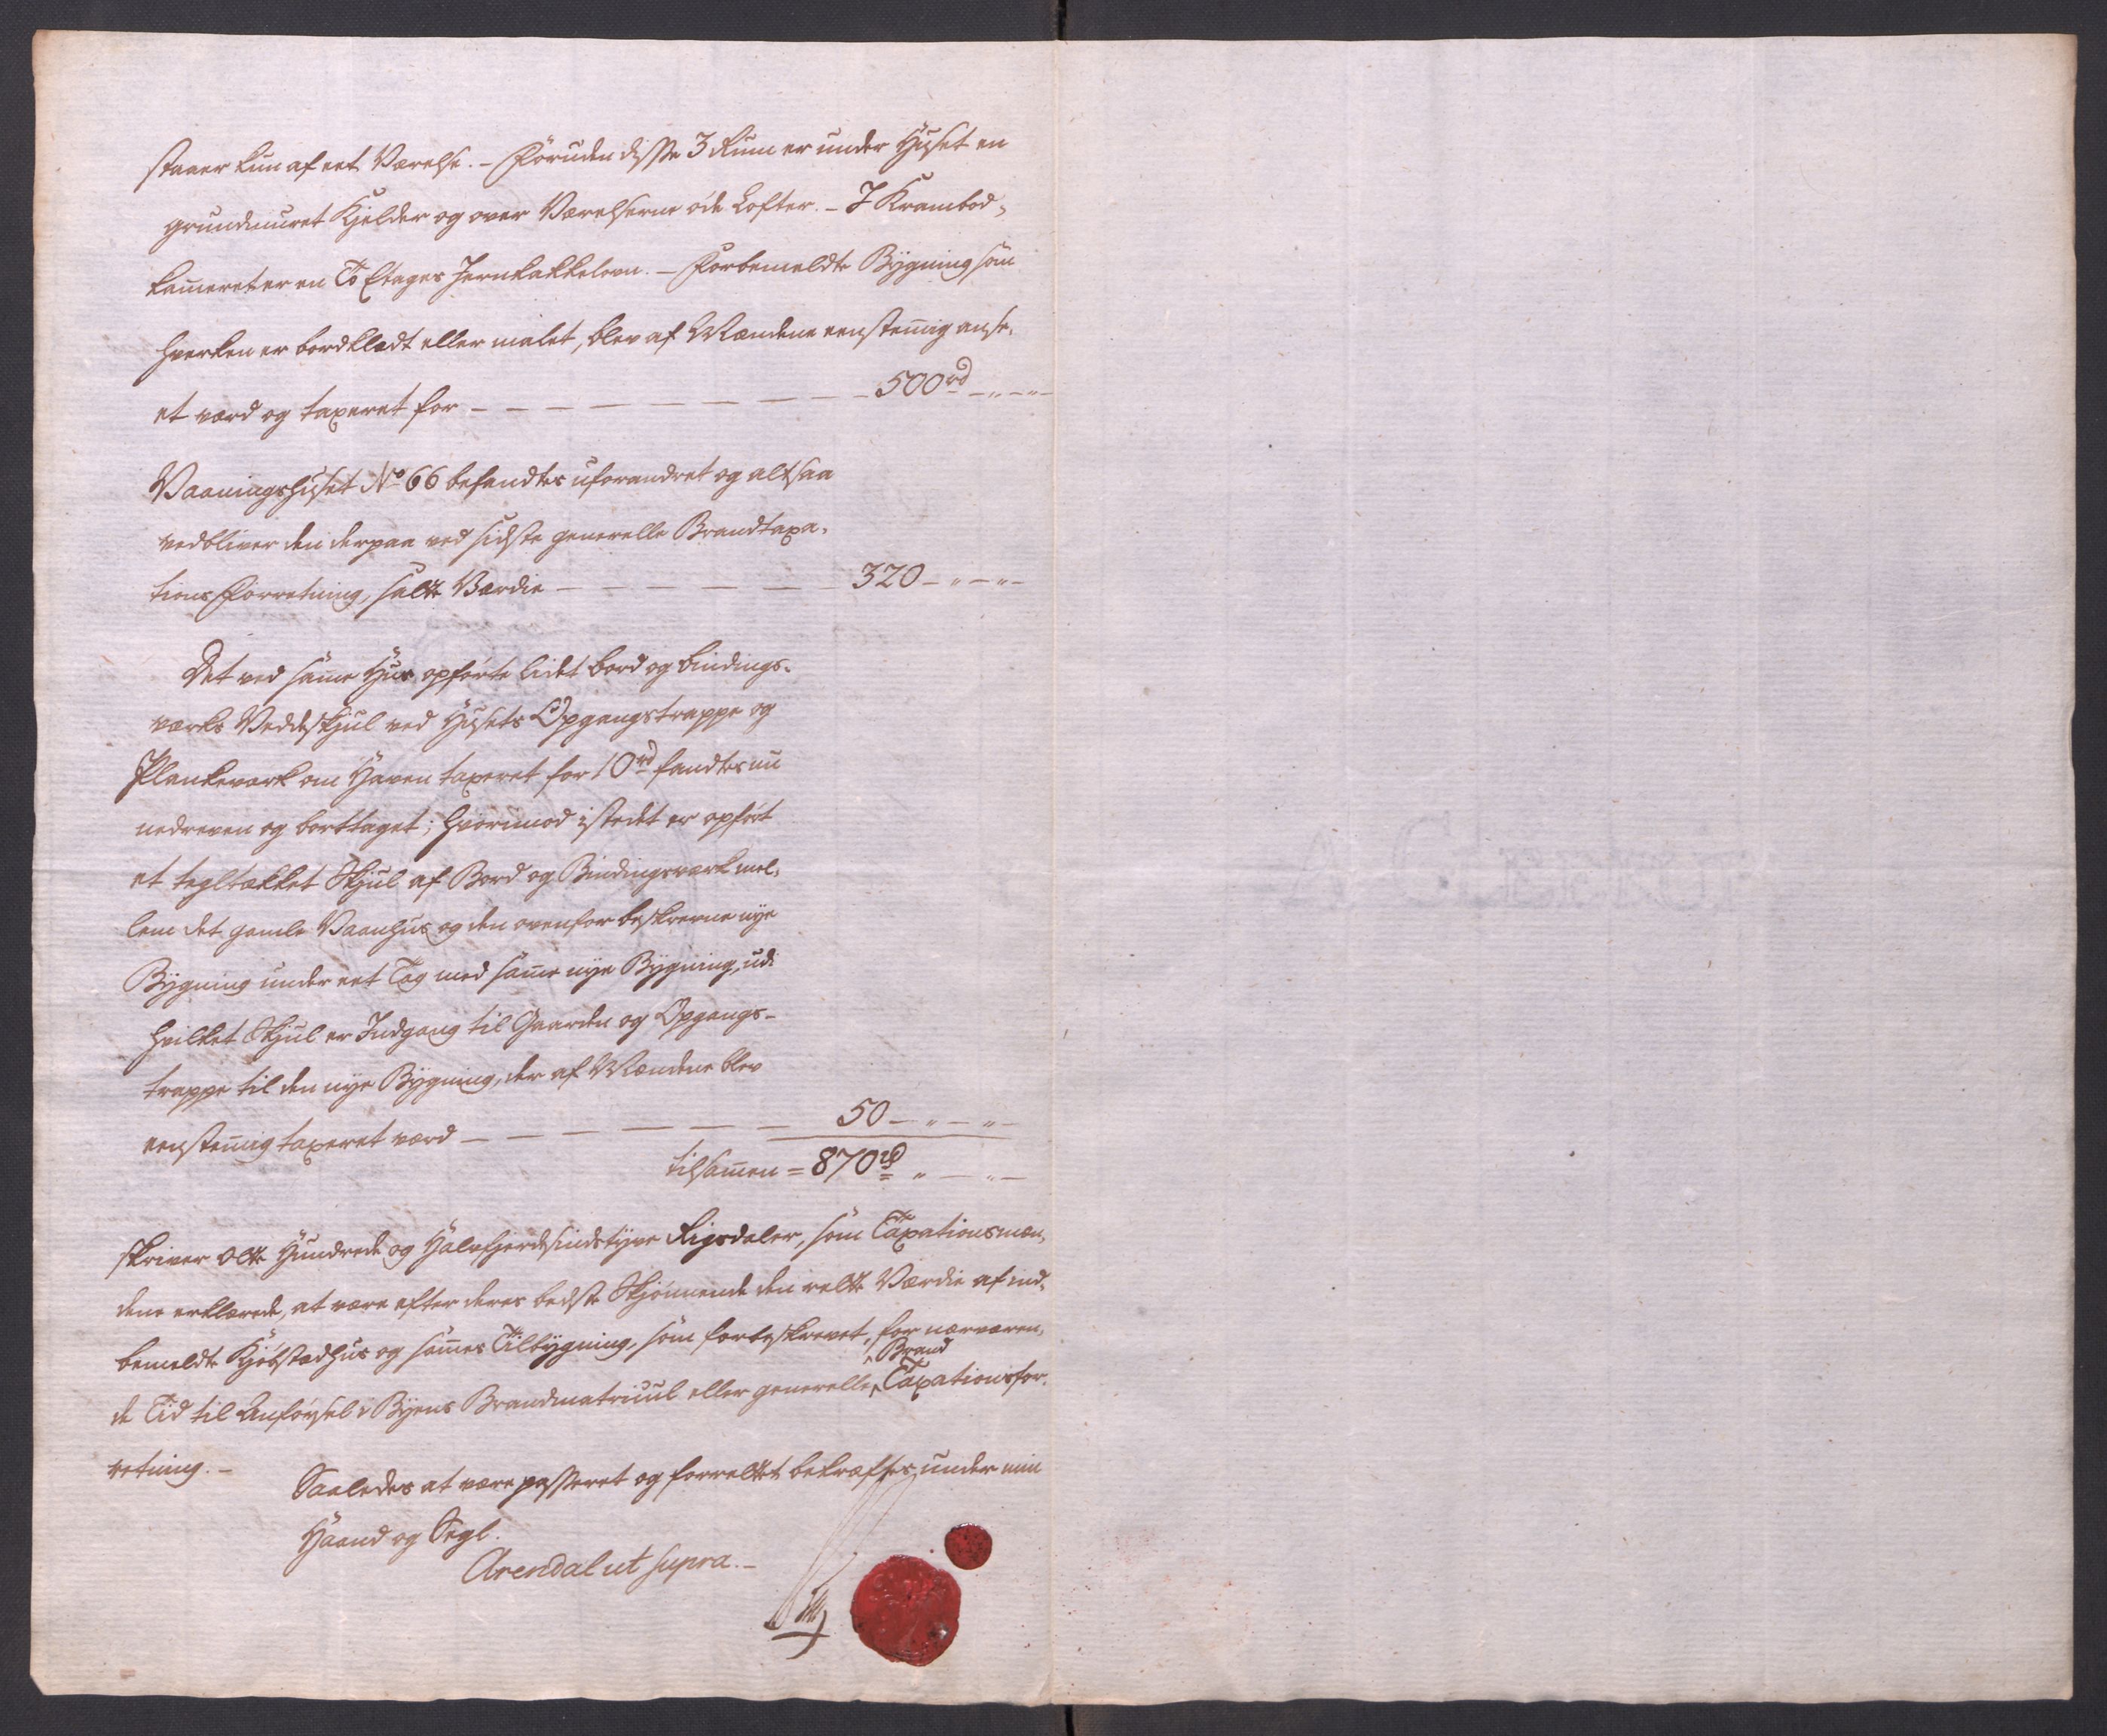 staaer kun af eet Værelse. – Foruden disse 3 Rum er under Huset en
grundmuret Kjelder og over Værelserne øde Lofter. – I Krambod-
kam̄eret er en To Etages Jernkakkelovn. – Forbemeldte Bygning som
hverken er bordklædt eller malet, blev af Mændene eenstem̄ig anse-
et værd og taxeret for – – – – – – – – – – 500 rd – „ – „ –
Vaaningshuset No 66 befandtes uforandret og altsaa
vedbliver den derpaa ved sidste generelle Brandtaxa-
tions Forretning, satte Værdie – – – – – – 320 – „ – „ –
Det ved sam̄e Huus opførte lidet bord og bindings-
værks Vedeskjul ved Husets Opgangstrappe og
Plankeværk om Haven taxeret for 10 rd fandtes nu
nedreven og borttaget; hvorimod istedet er opført
et tegltækket Skjul af Bord og Bindingsværk mel-
lem det gamle Vaanhus og den ovenfor beskrevne nye
Bygning under eet Tag med sam̄e nye Bygning, udi
hvilket Skjul er Indgang til Gaarden og Opgangs-
trappe til den nye Bygning, der af Mændene blev
eenstem̄ig taxeret værd – – – – – – – 50 – „ – „ –
tilsam̄en = 870 rd „ – „ –
skriver Otte Hundrede og Halvfjerdsindstyve Rigsdaler, som Taxationsmæn-
dene erklærede, at være efter deres bedste Skjønnende den rette Værdie af ind-
bemeldte Kjøbstædhus og sam̄es Tilbygning, som forbeskrevet, for nærværen-
Brand
de Tid til Anførsel i Byens Brandmatricul eller generelle ^ Taxationsfor-
retning. –
Saaledes at være passeret og forrettet bekræftes under min
Haand og Segl.
Arendal ut supra. –